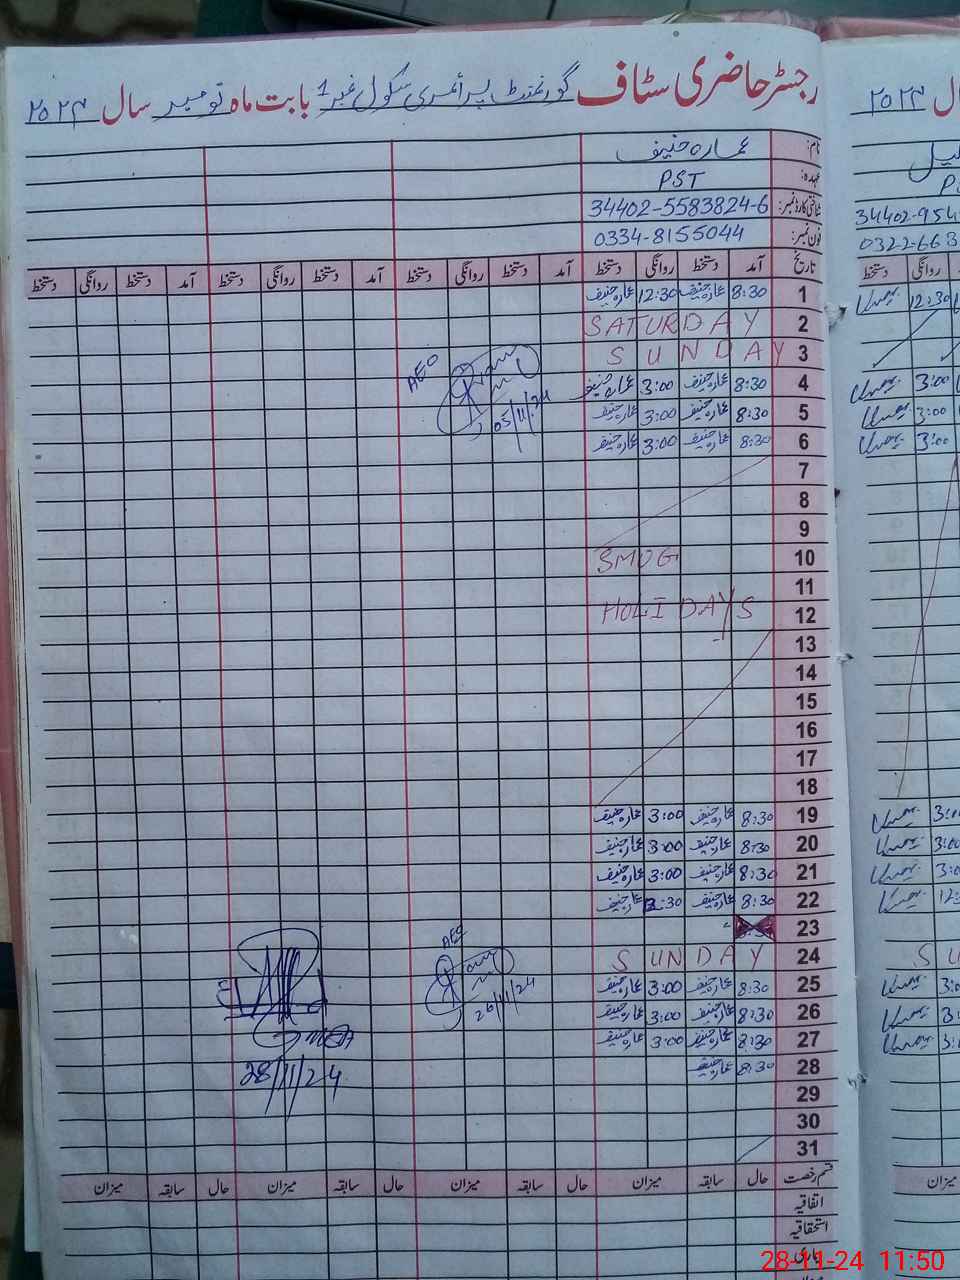 رجسٹر حاضری سٹاف گورنمنٹ پرائمری سکول نمبر 1 بابت ماہ نومبر سال ۲۰۲۴
نام: عمارہ حنیف
عہدہ: PST
شناختی کارڈ نمبر: 34402-5583824-6
فون نمبر: 0334-8155044
تاریخ آمد دستخط روانگی دستخط آمد دستخط روانگی دستخط آمد دستخط روانگی دستخط آمد دستخط روانگی دستخط
1 8:30 عمارہ حنیف 12:30 عمارہ حنیف
2 SATURDAY
3 SUNDAY
4 8:30 عمارہ حنیف 3:00 عمارہ حنیف
AEO
5 8:30 عمارہ حنیف 3:00 عمارہ حنیف
05/11/24
6 8:30 عمارہ حنیف 3:00 عمارہ حنیف
7
8
9
10 SMOG
11
12 HOLIDAYS
13
14
15
16
17
18
19 8:30 عمارہ حنیف 3:00 عمارہ حنیف
20 8:30 عمارہ حنیف 3:00 عمارہ حنیف
21 8:30 عمارہ حنیف 3:00 عمارہ حنیف
22 8:30 عمارہ حنیف :30 عمارہ حنیف
23
AEO
24 SUNDAY
25 8:30 عمارہ حنیف 3:00 عمارہ حنیف
26 8:30 عمارہ حنیف 3:00 عمارہ حنیف
26/11/24
27 8:30 عمارہ حنیف 3:00 عمارہ حنیف
28 8:30 عمارہ حنیف
28/11/24
29
30
31
قسم رخصت حال سابقہ میزان حال سابقہ میزان حال سابقہ میزان حال سابقہ میزان
اتفاقیہ
استحقاقیہ
۲۰۲۴
34402-954
0322-663
دستخط روانگی
12:30
3:00
3:00
3:00
3:00
3:00
3:0
12:
SU
3:0
3:
3:
میزان
28-11-24 11:50